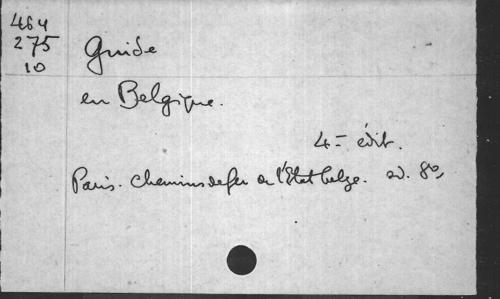 464
275
10
Guide
en Belgique.
4= édit.
Paris. Chemins de fer de l'Etat belge. sd. 8º,